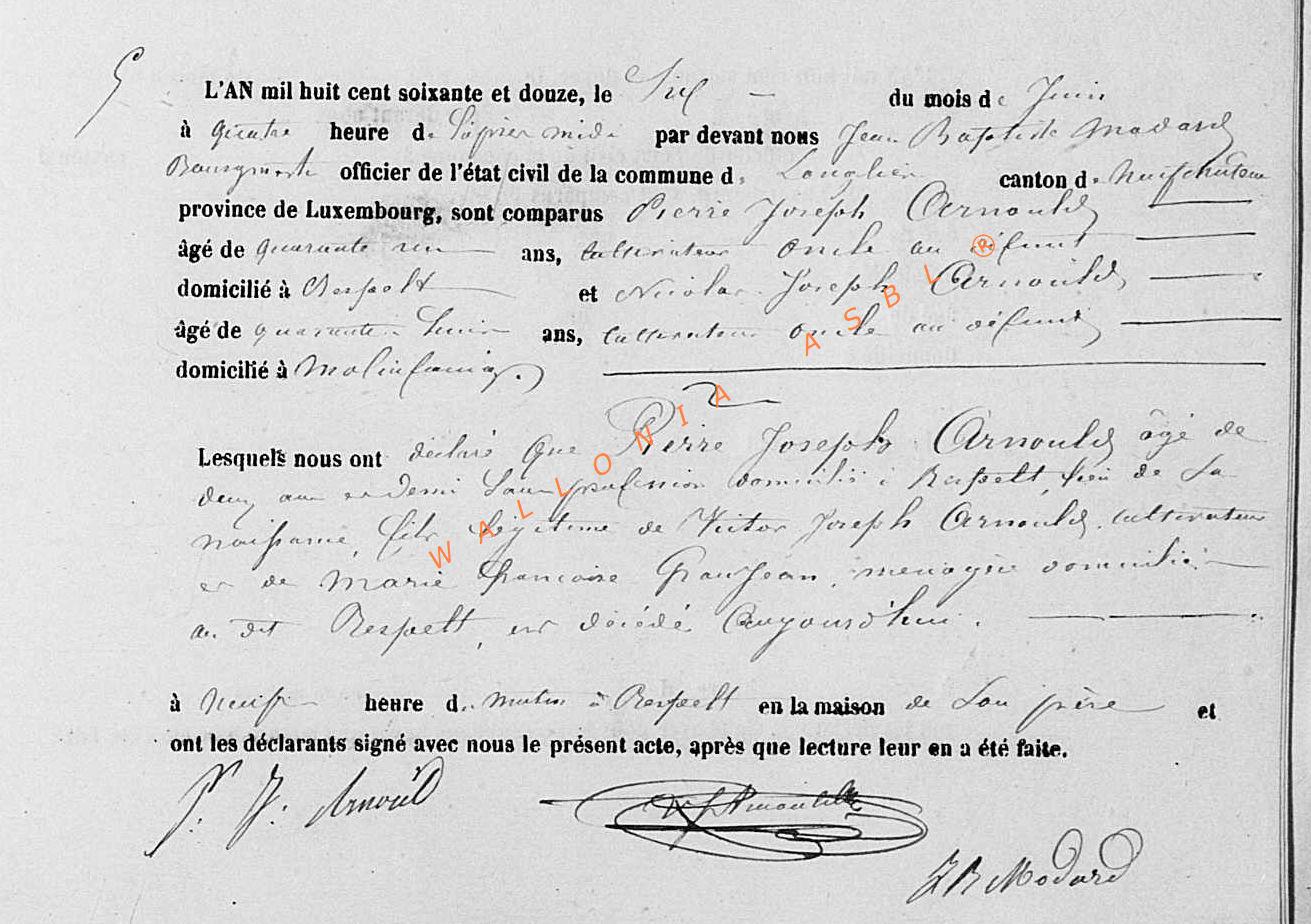 5
L'AN mil huit cent soixante et douze, le Six du mois de Juin
à quatre heure de l'après midi par devant nous Jean Baptiste Modard
Bourgmestre officier de l'état civil de la commune de Longlier canton de Neufchateau
province de Luxembourg, sont comparus Pierre Joseph Arnould
âgé de quarante un ans, cultivateur oncle au défunt
domicilié à Respelt et Nicolas Joseph Arnould
âgé de quarante ans, cultivateur oncle au défunt
domicilié à Molinfaing
Lesquels nous ont déclaré que Pierre Joseph Arnould âgé de
deux ans et demi sans profession domicilié à Respelt, lieu de sa
naissance, fils légitime de Victor Joseph Arnould, cultivateur
et de Marie Françoise Grandjean, menagère domiciliés
au dit Respelt, est décédé aujourd'hui.
à neuf heure du matin à Respelt en la maison de son père et
ont les déclarants signé avec nous le présent acte, après que lecture leur en a été faite.
P. J. Arnould
N J Arnould
J B Modard
WALLONIA ASBL ®